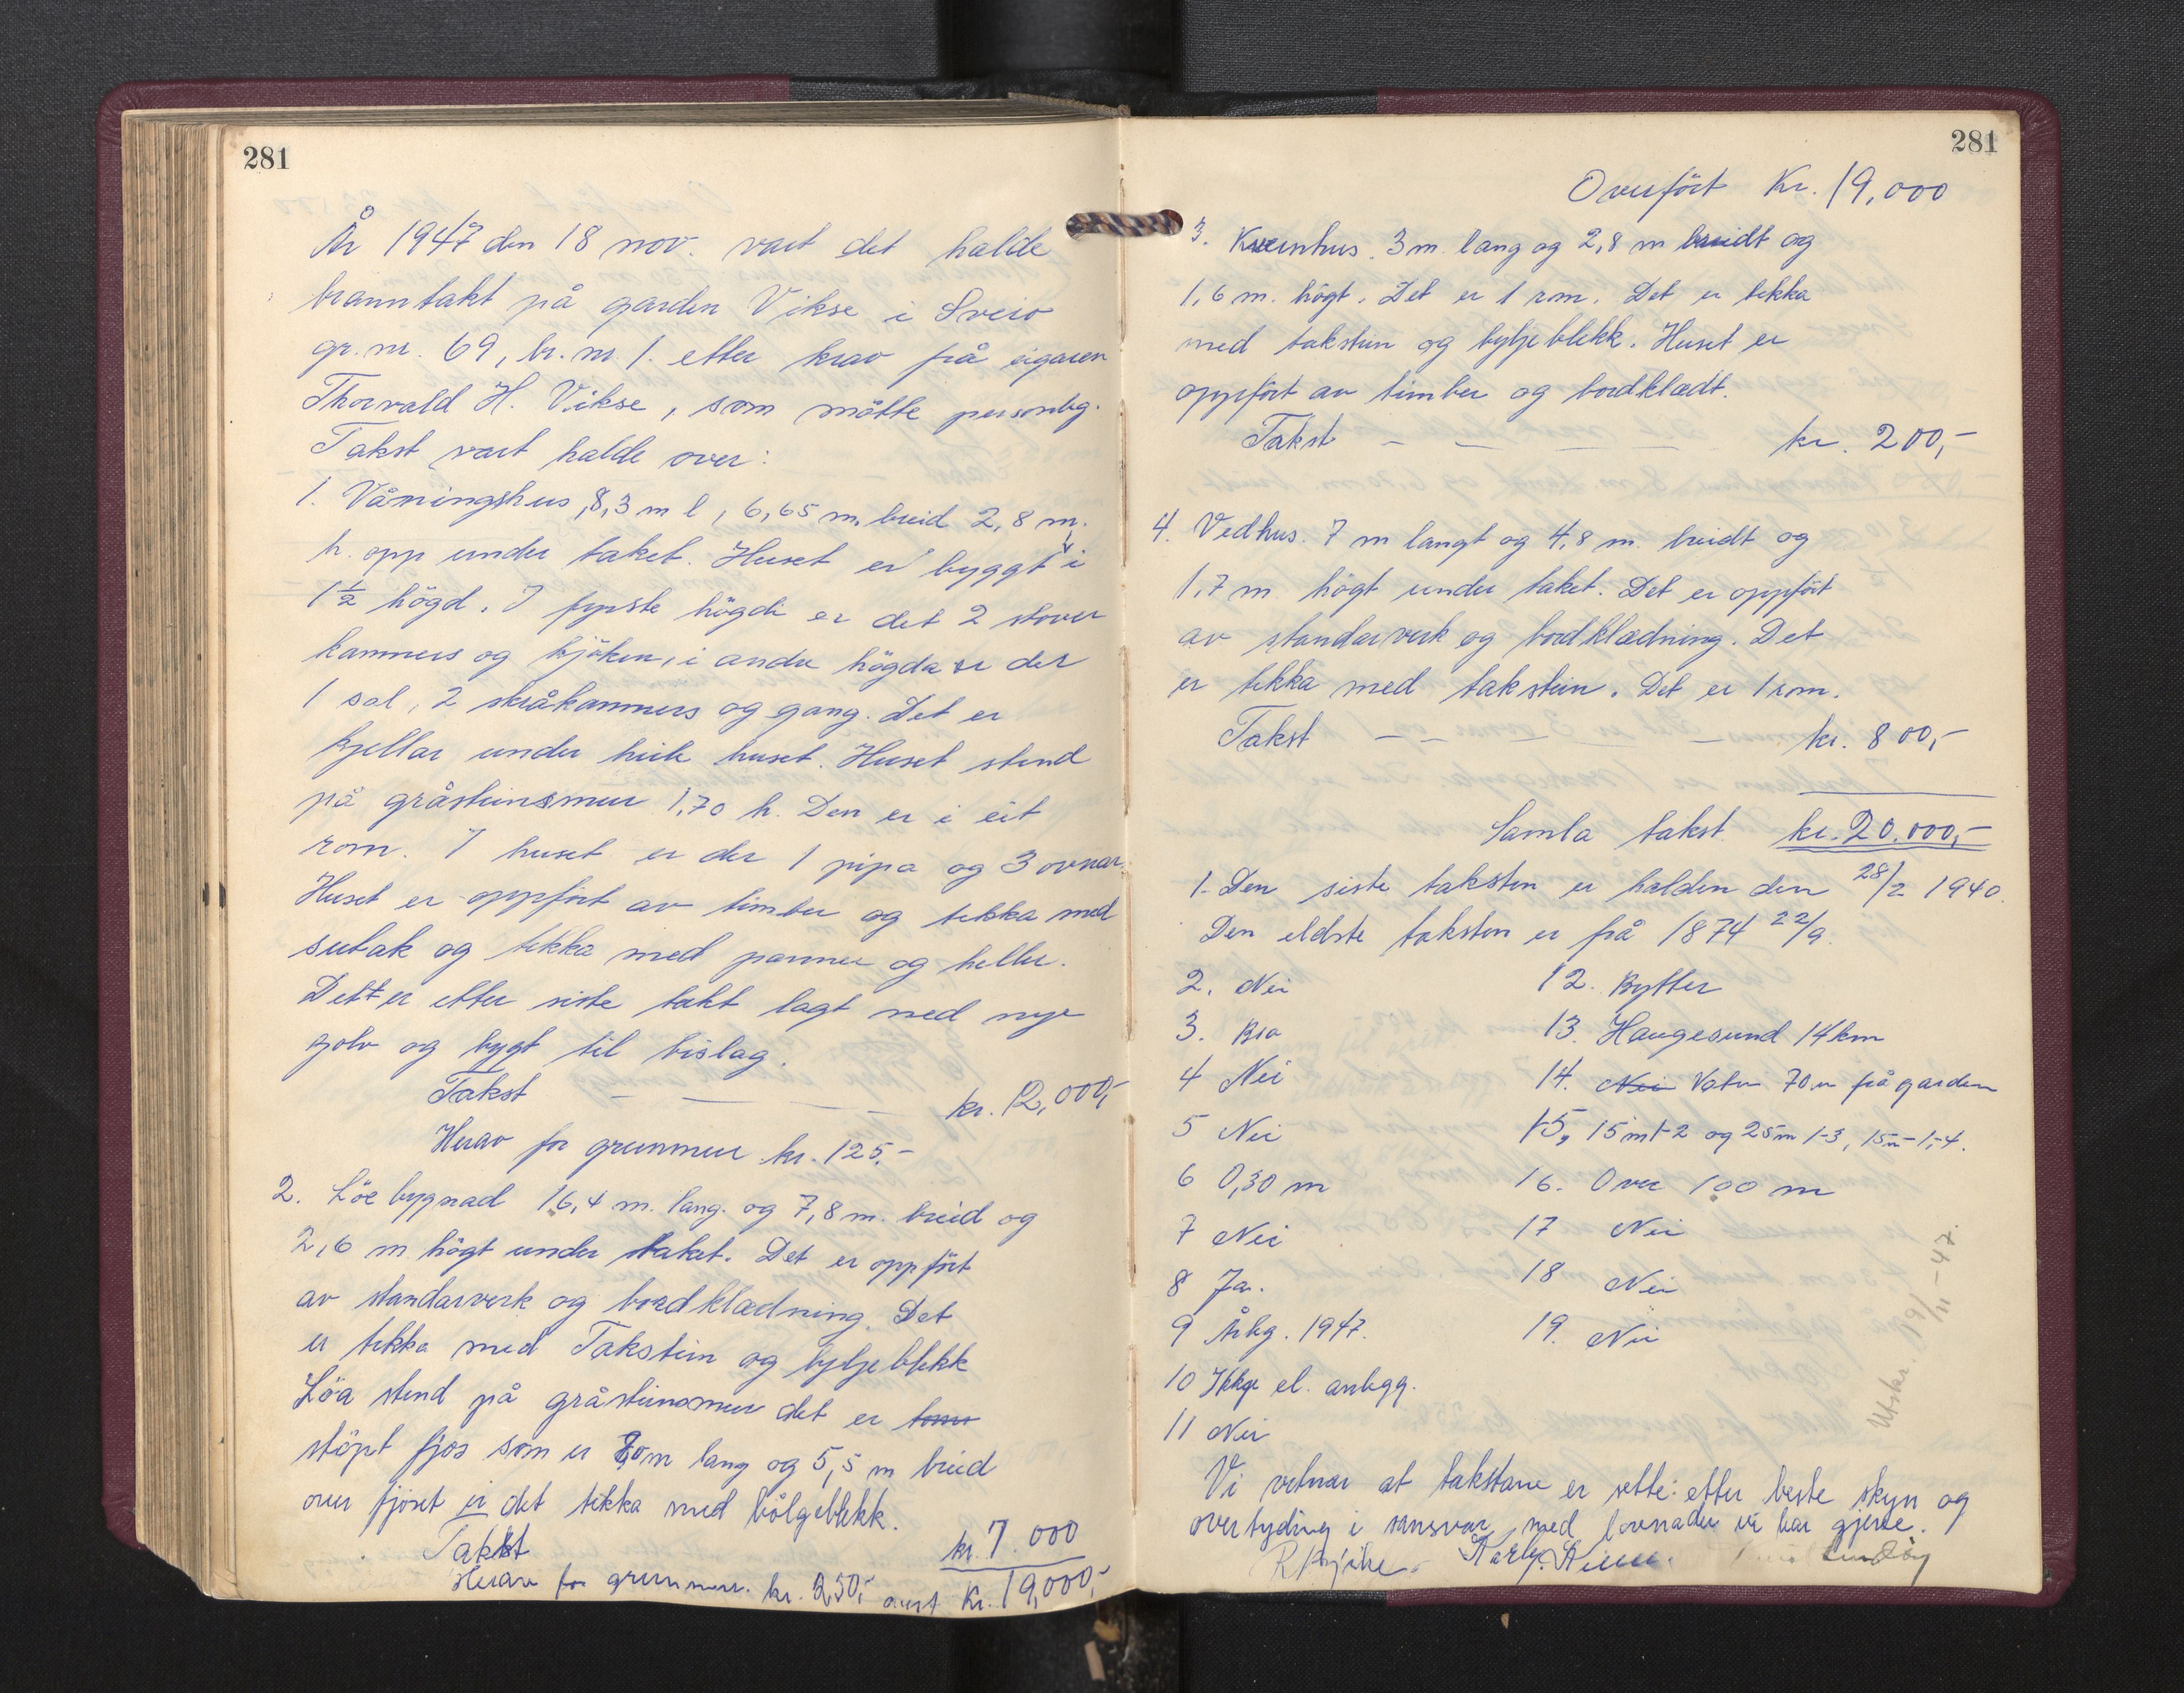 281
År 1947 den 18 nov. vart det halde
branntakt på garden Vikse i Sveio
gr. nr. 69, br. nr. 1. etter krav frå eigaren
Thorvald H. Vikse, som mötte personleg.
Takst vart halde over:
1. Våningshus, 8,3 m l, 6,65 m. breid 2,8 m.
h. opp under taket. Huset er byggt i
1½ högd. I fyrste högdi er det 2 stover
kammers og kjöken, i andre högda er der
1 sal, 2 skråkammers og gang. Det er
kjellar under heile huset. Huset stend
på gråsteinsmur 1,70 h. Den er i eit
rom. I huset er der 1 pipa og 3 ovnar.
Huset er oppfört av timber og tekka med
sutak og tekka med panner og heller.
Det er etter siste takt lagt ned nye
golv og bygt til bislag.
Takst — — — — kr. 12,000,-
Herav for grunnmur kr. 125,-
2. Löe bygnad 16,4 m. lang. og 7,8 m. breid og
2,6 m högt under taket. Det er oppfört
av standarverk og bordklædning. Det
er tekka med Takstein og bylgjeblekk
Löa stend på gråsteinsmur det er
stöpt fjos som er 8,0 m lang og 5,5 m breid
over fjöset er det tekka med bölgeblekk.
Takst kr. 7.000
Herav for grunnmur. kr. 250,- overf. Kr. 19,000,-
281
Overfört Kr. 19,000
3. Kvernhus. 3 m. lang og 2,8 m breidt og
1,6 m. högt. Det er 1 rom. Det er tekka
med takstein og bylgjeblekk. Huset er
oppfört av timber og bordklædt.
Takst — — — — kr. 200,-
4. Vedhus. 7 m langt og 4,8 m. breidt og
1,7 m högt under taket. Det er oppfört
av standarverk og bordklædning. Det
er tekka med takstein. Det er 1 rom.
Takst — — — — kr. 800,-
Samla takst kr. 20.000,-
1. Den siste taksten er halden den 28/2 1940.
Den eldste taksten er frå 1874 22/9.
2. Nei
3. Bra
4 Nei
5 Nei
6 0,30 m
7 Nei
8 Ja.
9 Årbg. 1947.
10 Ikkje el. anlegg.
11 Nei
12. Bytter
13. Haugesund 14 km
14. Nei Vatn 70 m frå garden
15, 15 m 1-2 og 25 m 1-3, 15 m 1-4.
16. Over 100 m
17 Nei
18 Nei
19. Nei
Utskr. 19/11-47.
Vi vitnar at takstane er sette etter beste skyn og
overtyding i ansvar med lovnader vi har gjeve.